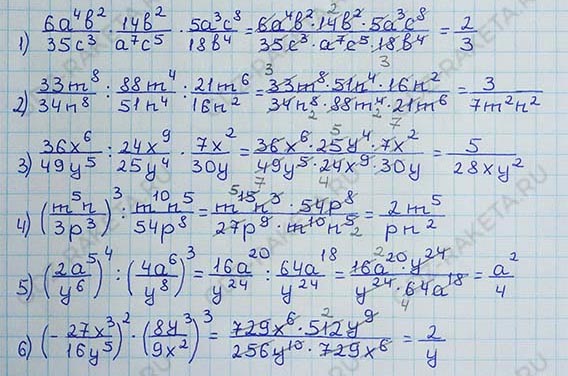 1) 6a⁴b²/35c³ · 14b²/a⁷c⁵ · 5a³c⁸/18b⁴ = 6a⁴b²·14b²·5a³c⁸/35c³·a⁷c⁵·18b⁴ = 2/3
2) 33m⁸/34n⁸ : 88m⁴/51n⁴ : 21m⁶/16n² = 33m⁸·51n⁴·16n²/34n⁸·88m⁴·21m⁶ = 3/7m²n²
3) 36x⁶/49y⁵ : 24x⁹/25y⁴ · 7x²/30y = 36x⁶·25y⁴·7x²/49y⁵·24x⁹·30y = 5/28xy²
4) (m⁵n/3p³)³ : m¹⁰n⁵/54p⁸ = m¹⁵n³·54p⁸/27p⁹·m¹⁰n⁵ = 2m⁵/pn²
5) (2a⁵/y⁶)⁴ : (4a⁶/y⁸)³ = 16a²⁰/y²⁴ : 64a¹⁸/y²⁴ = 16a²⁰·y²⁴/y²⁴·64a¹⁸ = a²/4
6) (-27x³/16y⁵)² · (8y³/9x²)³ = 729x⁶·512y⁹/256y¹⁰·729x⁶ = 2/y